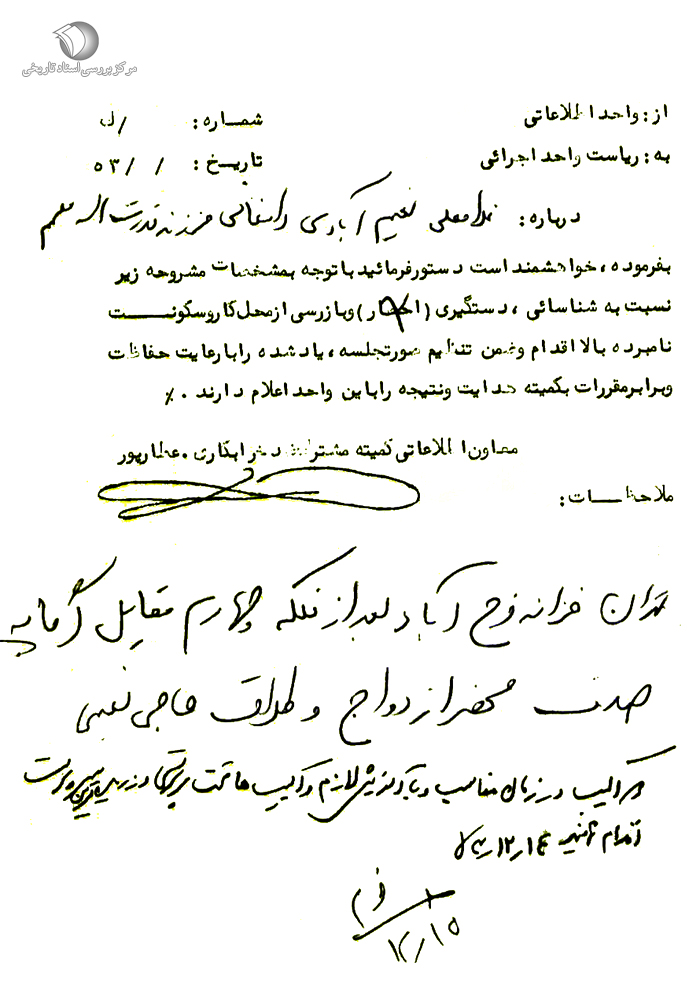 مرکز بررسی اسناد تاریخی
از: واحد اطلاعاتی
شماره: /ك
به: ریاست واحد اجرائی
تاریخ: / / ۵۳
درباره: غلامعلی نعیم آبادی دامغانی فرزند قدرت اله معمم
بفرموده، خواهشمند است دستور فرمائید با توجه بمشخصات مشروحه زیر
نسبت به شناسائی، دستگیری (احضار) و بازرسی از محل کار و سکونت
نامبرده بالا اقدام و ضمن تنظیم صورتجلسه، یاد شده را با رعایت حفاظت
و برابر مقررات بکمیته هدایت و نتیجه را باین واحد اعلام دارند. ٪
معاون اطلاعاتی کمیته مشترک ضد خرابکاری. عطارپور
ملاحظات:
تهران خزانه فرح آباد بعد از فلکه چهارم مقابل گرمابه
صدف محضر ازدواج و طلاق حاجی نعیمی
اکیپ در زمان مناسب و با آموزش لازم و اکیپ ها تحت
اقدام ۱۲٫۱۴
۱۲٫۱۵